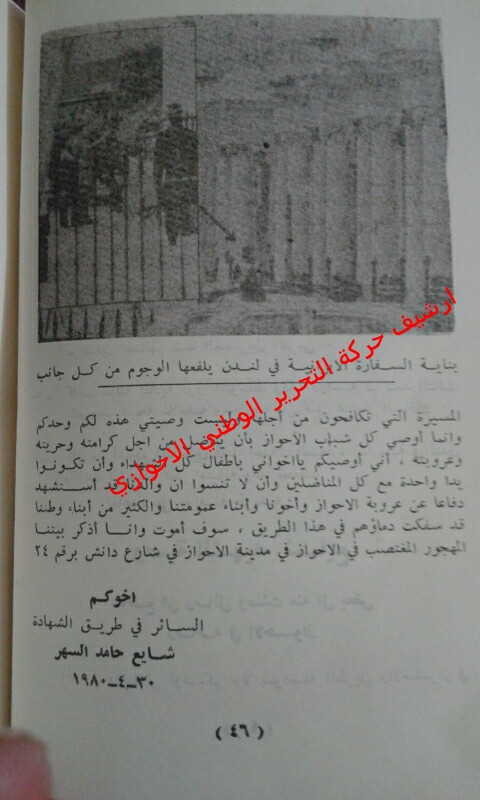 بناية السفارة الايرانية في لندن يلفعها الوجوم من كل جانب
المسيرة التي تكافحون من أجلها وليست وصيتي هذه لكم وحدكم
وانما أوصي كل شباب الاحواز بأن يناضل من اجل كرامته وحريته
وعروبته ، أني أوصيكم يااخواني باطفال كل الشهداء وأن تكونوا
يدا واحدة مع كل المناضلين وأن لا تنسوا ان والدنا قد أستشهد
دفاعا عن عروبة الاحواز وأخونا وأبناء عمومتنا والكثير من أبناء وطننا
قد سفكت دماؤهم في هذا الطريق ، سوف أموت وانا أذكر بيتنا
المهجور المغتصب في الاحواز في مدينة الاحواز في شارع دانش برقم ٢٤
اخوكم
السائر في طريق الشهادة
شايع حامد السهر
٣٠ـ٤ـ١٩٨٠
( ٤٦ )
ارشيف حركة التحرير الوطني الاحوازي